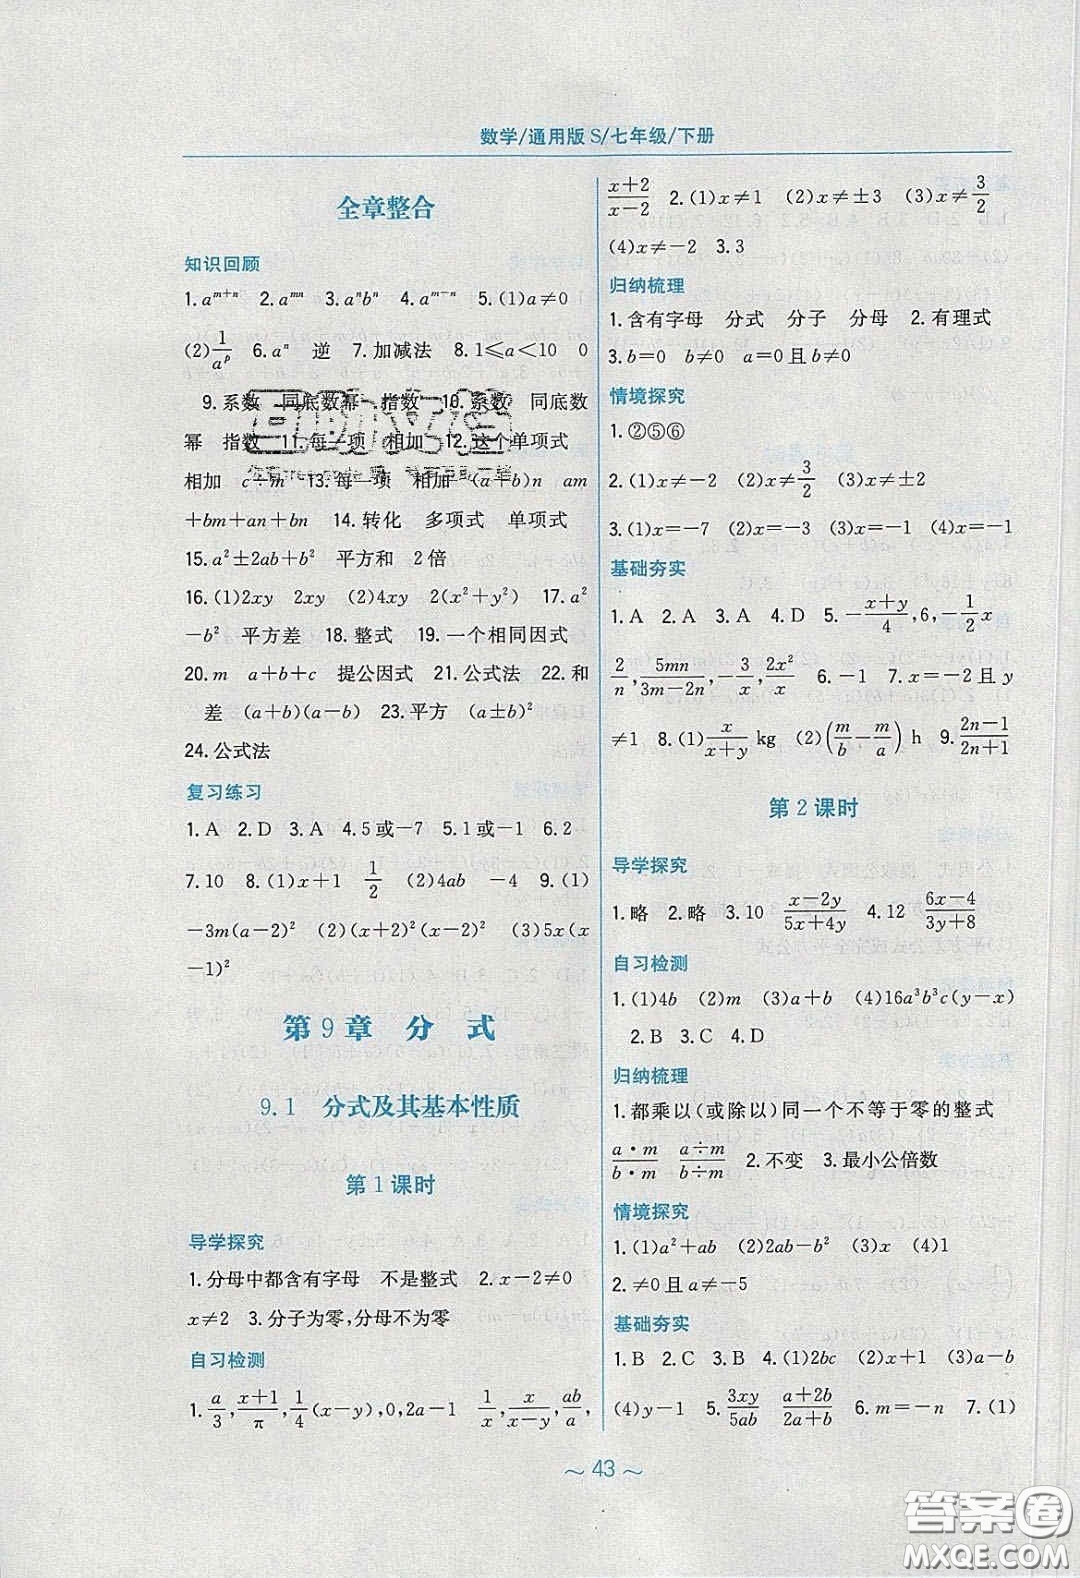 数学/通用版S/七年级/下册
全章整合
知识回顾
1.a^{m+n} 2.a^{mn} 3.a^n b^n 4.a^{m-n} 5.(1)a≠0
(2)1/a^p 6.a^n 逆 7.加减法 8.1≤a<10 0
9.系数 同底数幂 指数 10.系数 同底数
幂 指数 11.每一项 相加 12.这个单项式
相加 c÷m 13.每一项 相加 (a+b)n am
+bm+an+bn 14.转化 多项式 单项式
15.a²±2ab+b² 平方和 2倍
16.(1)2xy 2xy (2)4xy 2(x²+y²) 17.a²
-b² 平方差 18.整式 19.一个相同因式
20.m a+b+c 提公因式 21.公式法 22.和
差 (a+b)(a-b) 23.平方 (a±b)²
24.公式法
复习练习
1.A 2.D 3.A 4.5或-7 5.1或-1 6.2
7.10 8.(1)x+1 1/2 (2)4ab -4 9.(1)
-3m(a-2)² (2)(x+2)²(x-2)² (3)5x(x
-1)²
第9章 分 式
9.1 分式及其基本性质
第1课时
导学探究
1.分母中都含有字母 不是整式 2.x-2≠0
x≠2 3.分子为零,分母不为零
自习检测
1.a/3,(x+1)/π,1/4(x-y),0,2a-1 1/x,x/(x-y),ab/a,
(x+2)/(x-2) 2.(1)x≠1 (2)x≠±3 (3)x≠3/2
(4)x≠-2 3.3
归纳梳理
1.含有字母 分式 分子 分母 2.有理式
3.b=0 b≠0 a=0且b≠0
情境探究
1.②⑤⑥
2.(1)x≠-2 (2)x≠3/2 (3)x≠±2
3.(1)x=-7 (2)x=-3 (3)x=-1 (4)x=-1
基础夯实
1.A 2.A 3.A 4.D 5.-(x+y)/4,6,-1/2x
2/n,5mn/(3m-2n),-3/x,2x²/x 6.-1 7.x=-2且y
≠1 8.(1)x/(x+y) kg (2)(m/b-m/a) h 9.(2n-1)/(2n+1)
第2课时
导学探究
1.略 2.略 3.10 (x-2y)/(5x+4y) 4.12 (6x-4)/(3y+8)
自习检测
1.(1)4b (2)m (3)a+b (4)16a³b³c(y-x)
2.B 3.C 4.D
归纳梳理
1.都乘以(或除以)同一个不等于零的整式
(a·m)/(b·m) (a÷m)/(b÷m) 2.不变 3.最小公倍数
情境探究
1.(1)a²+ab (2)2ab-b² (3)x (4)1
2.≠0且a≠-5
基础夯实
1.B 2.C 3.B 4.(1)2bc (2)x+1 (3)a-b
(4)y-1 5.3xy/5ab (a+2b)/(2a+b) 6.m=-n 7.(1)
~ 43 ~
答案圈
MXQE.COM